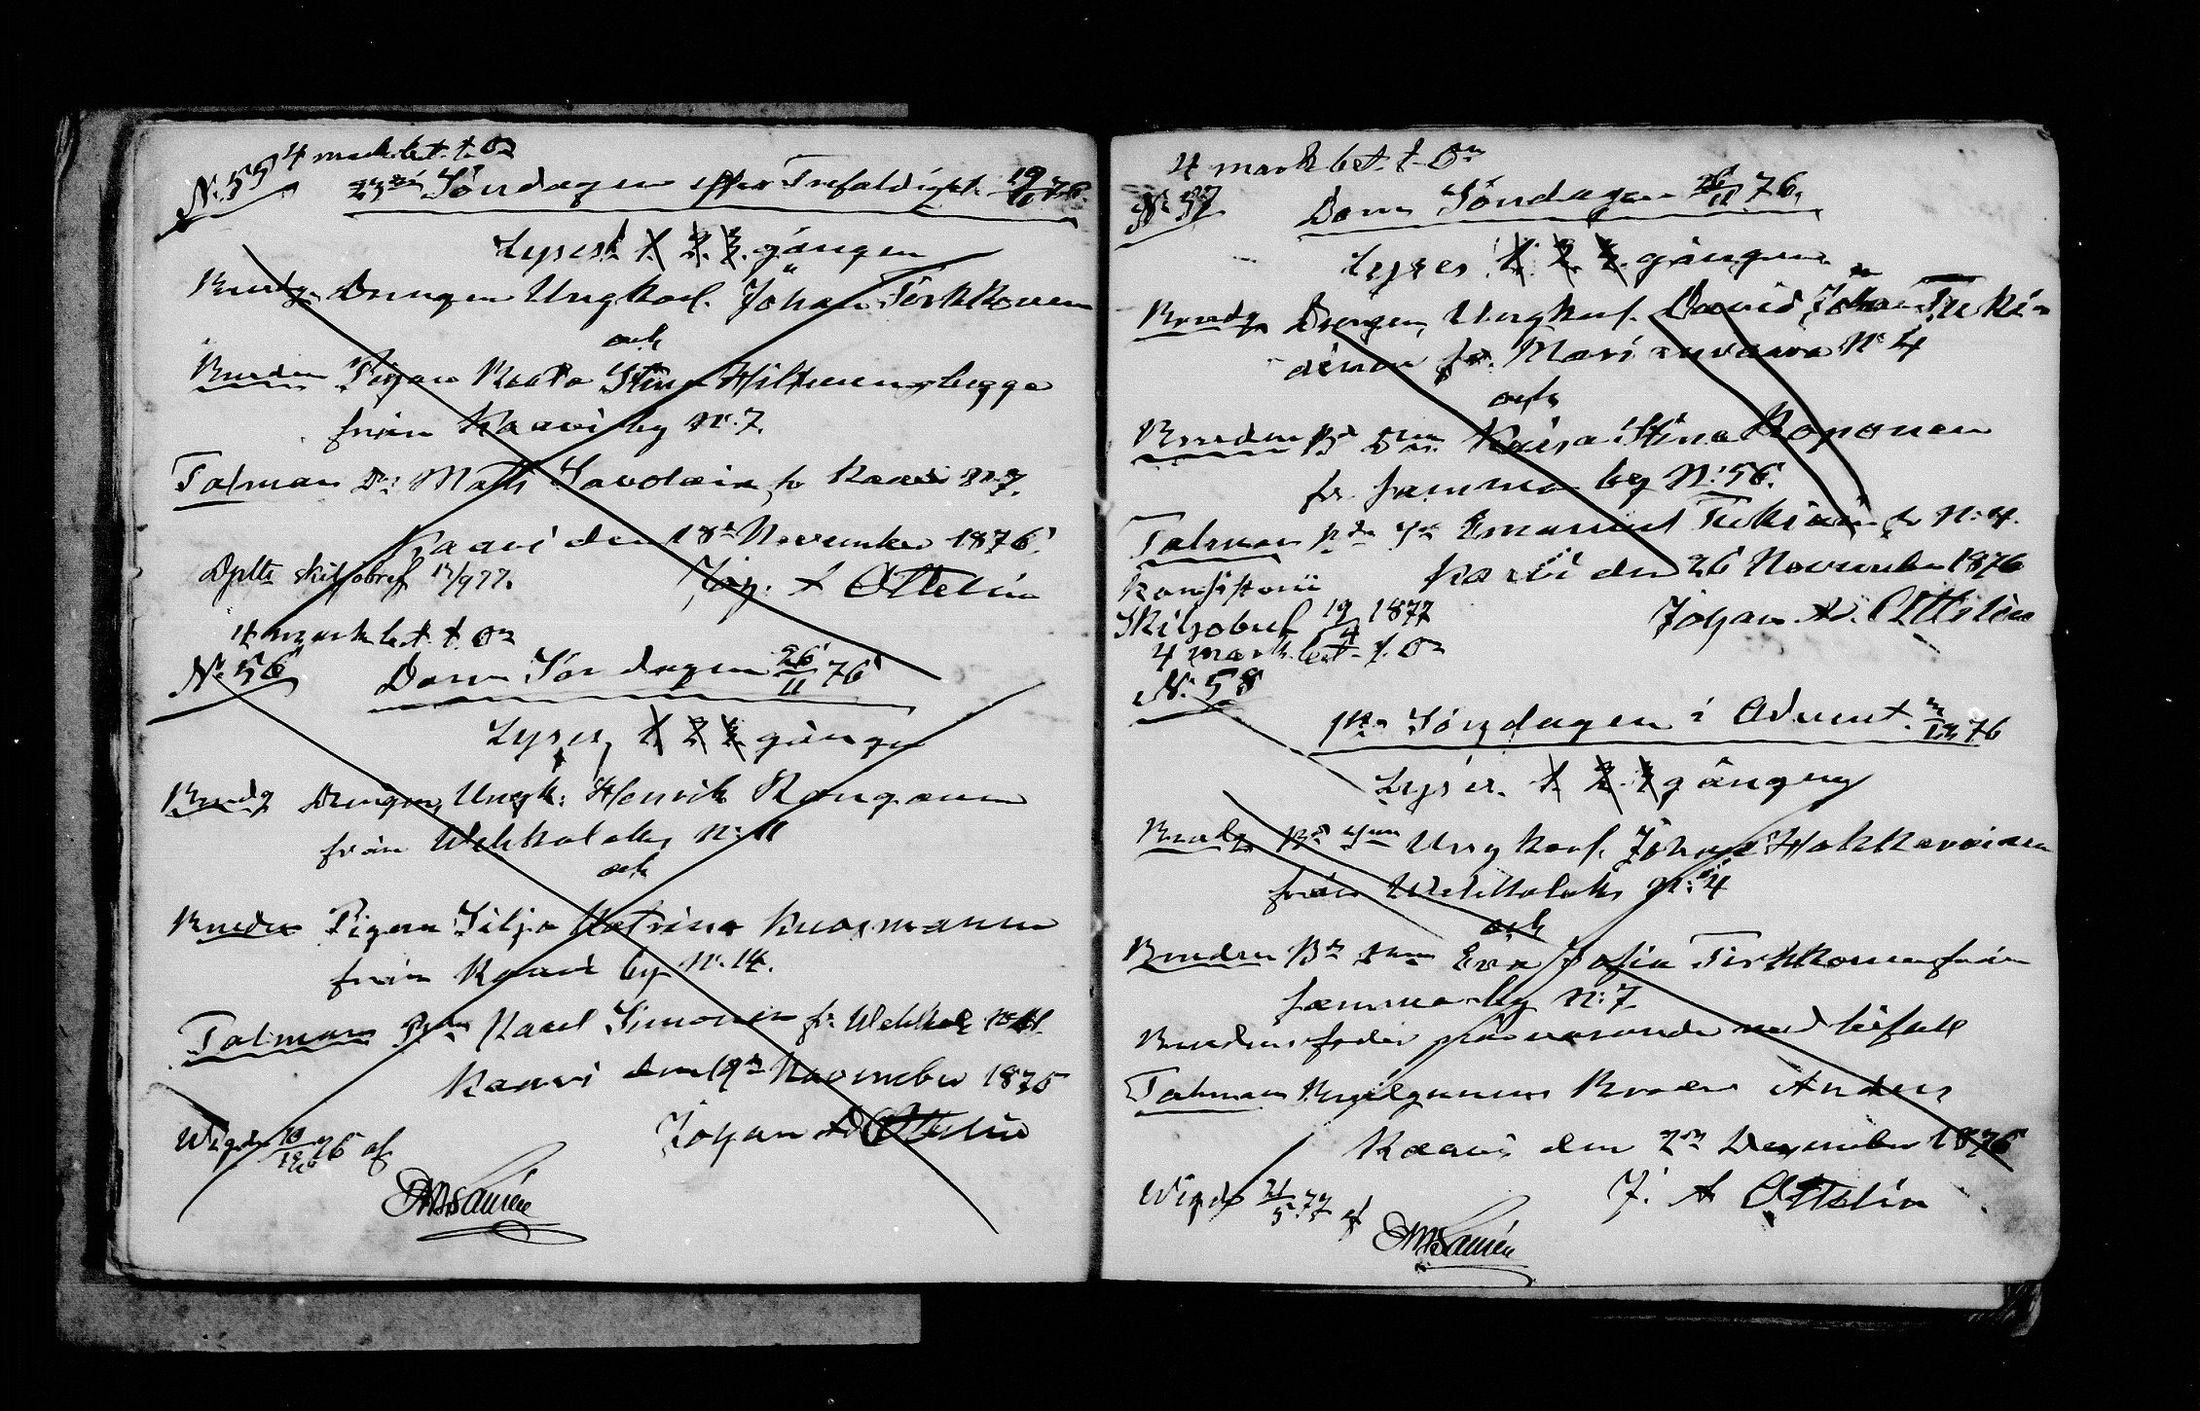 4 mark bet. t. On
N: 55
23dje Söndagen efter Trefaldighet 19/11 76.
Lyses 1. 2. 3. gången
Brudg. Drengen Ungkarl. Johan Tirkkonen
och
Bruden Pigan Stina Hiltunen
från Kaavi by N:7.
Talman Dr: Matts Savolain fr Kaavi N:7.
Kaavi den 18de November 1876.
Joh. A Ottelin
skiljobref 12/9 77.
4 mark bet. t. On
N: 56
Dom Söndagen 26/11 76
Lyses 1. 2. 3. gången
Brudg Drengen, Ungk: Henrik Rongainen
från Wehkalaks N: 11
och
Bruden Pigan Silja Katrina Kuosmanen
från Kaavi by N. 14.
Talman Karl Simonen fr. Wehkal N:11.
Kaavi den 19de November 1876
Johan Ad Ottelin
Wigde 10/12 76 af
4 mark bet. t. On
N: 57
Dom Söndagen 26/11 76.
Lyses 1. 2. 3. gången
Brudg Drengen, Ungkarl. David Johan Tuki-
ainen fr. Marianvaara N: 4
och
Bruden Bd Dtrn Kaisa Stina Roponen
fr. samma by N: 56.
Talman Emanuel Tukiain fr N: 4.
Kaavi den 26 November 1876
Johan A. Ottelin
Konsistorii
Skiljobref 19/4 1877
4 mark bet. t. On
N: 58
1sta Söndagen i Advent. 3/12 76
Lyses. 1. 2. 3 gången
Brudg Bd Son Ungkarl. Johan Hakkarainen
från Wehkalaks N: 4
och
Bruden Bd Dtrn Eva Sofia Tirkkonen från
samma by N: 7.
Brudens fader närvarande med bifall
Talman Brudgumens Broder Anders
Kaavi den 2dra December 1876
J. A Ottelin
Wigde 21/5 77 af